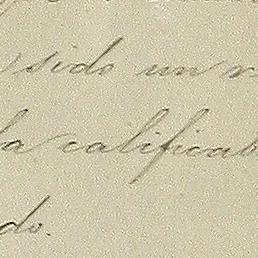 sido un
la califica
do.